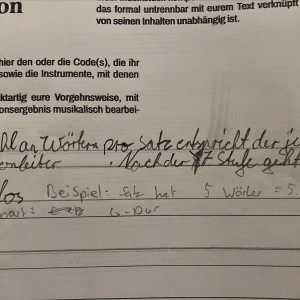 on
das formal untrennbar mit eurem Text verknüpft
von seinen Inhalten unabhängig ist.
hier den oder die Code(s), die ihr
sowie die Instrumente, mit denen
ktartig eure Vorgehnsweise, mit
onsergebnis musikalisch bearbei-
hl an Wörtern pro Satz entspricht der je
enleiter. Nach der 7 Stufe geht
los Beispiel: Satz hat 5 Wörter = 5.
G-Dur